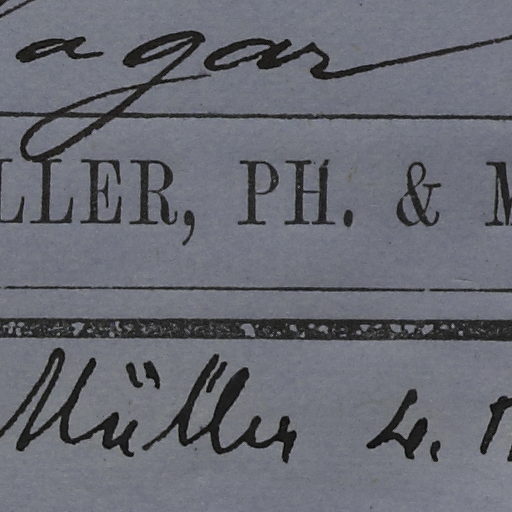 agar
LLER, PH. & M
Müller